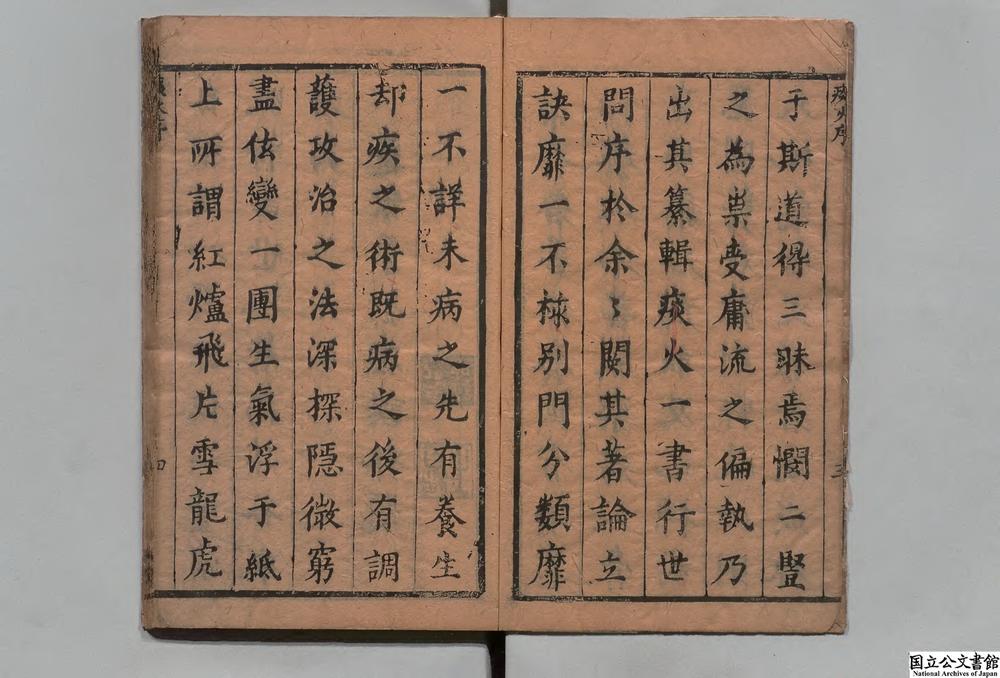 痰火序
三
于斯道得三昧焉憫二豎
之為祟受庸流之偏執乃
出其纂輯痰火一書行世
問序於余〻閱其著論立
訣靡一不梂別門分類靡
一不詳未病之先有養生
却疾之術既病之後有調
護攻治之法深探隱微窮
盡伭變一團生氣浮于紙
上所謂紅爐飛片雪龍虎
四
国立公文書館
National Archives of Japan